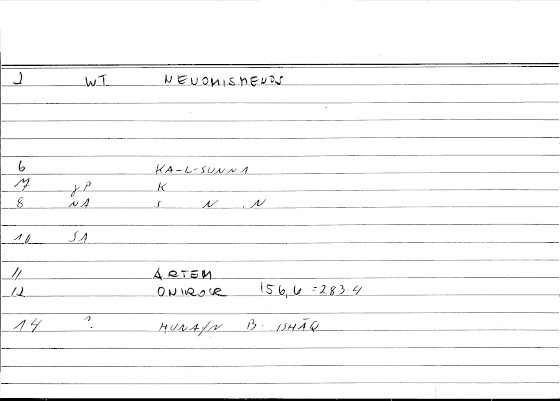 1 WT NEVOMISMENOS
6 KA-L-SUNNA
7 γP K
8 NA S N N
10 SA
11 ARTEM
12 ONIROCR 156,6 = 283.4
14 ? HUNAYN B. ISHĀQ